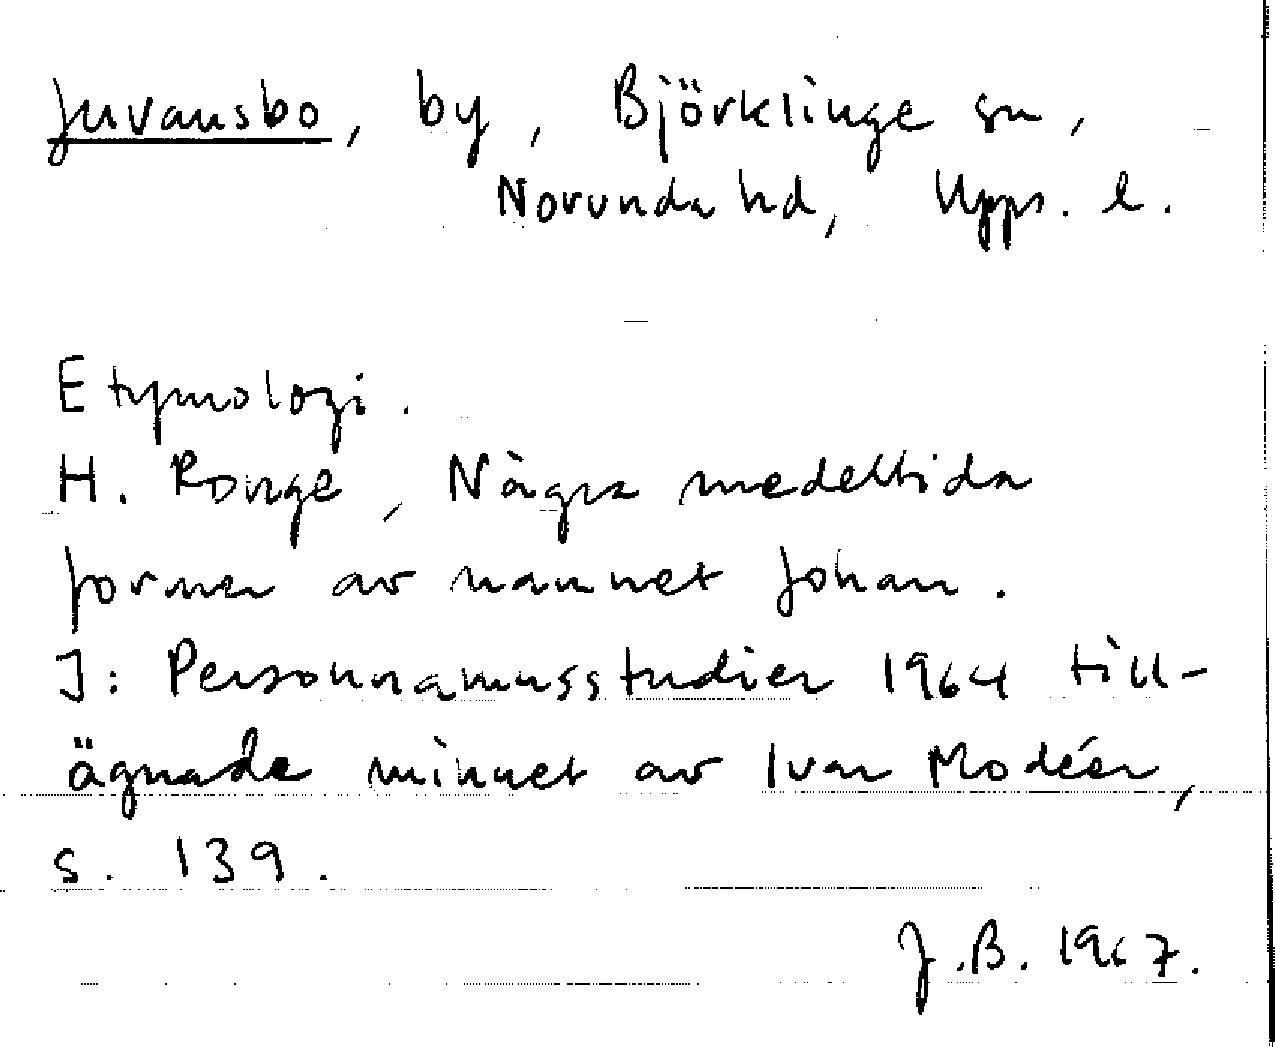 Juvansbo, by, Björklinge sn,
Norunda hd, Upps. l.
Etymologi.
H. Ronge, Några medeltida
former av namnet Johan.
I: Personnamnsstudier 1964 till-
ägnade minnet av Ivar Modéer,
s. 139.
J.B. 1967.